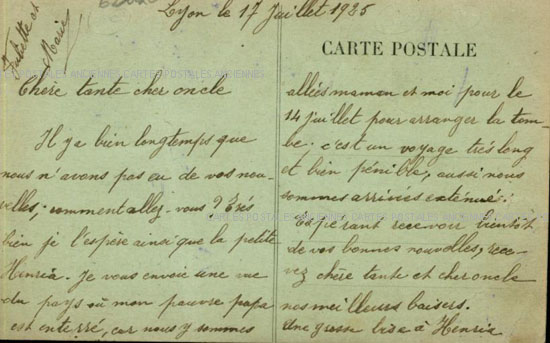 Lyon le 17 Juillet 1925
Juliette et
Marie
CARTE POSTALE
Chère tante cher oncle
Il y a bien longtemps que
nous n'avons pas eu de vos nou-
velles, comment allez-vous? très
bien je l'espère ainsi que la petite
Henria. Je vous envoie une vue
du pays où mon pauvre papa
est enterré, car nous y sommes
alliés maman et moi pour le
14 juillet pour arranger la tom-
be. c'est un voyage très long
et bien pénible, aussi nous
sommes arrivés exténués.
Espérant recevoir bientôt
de vos bonnes nouvelles, rece-
vez chère tante et cher oncle
nos meilleurs baisers.
Une grosse bise à Henria